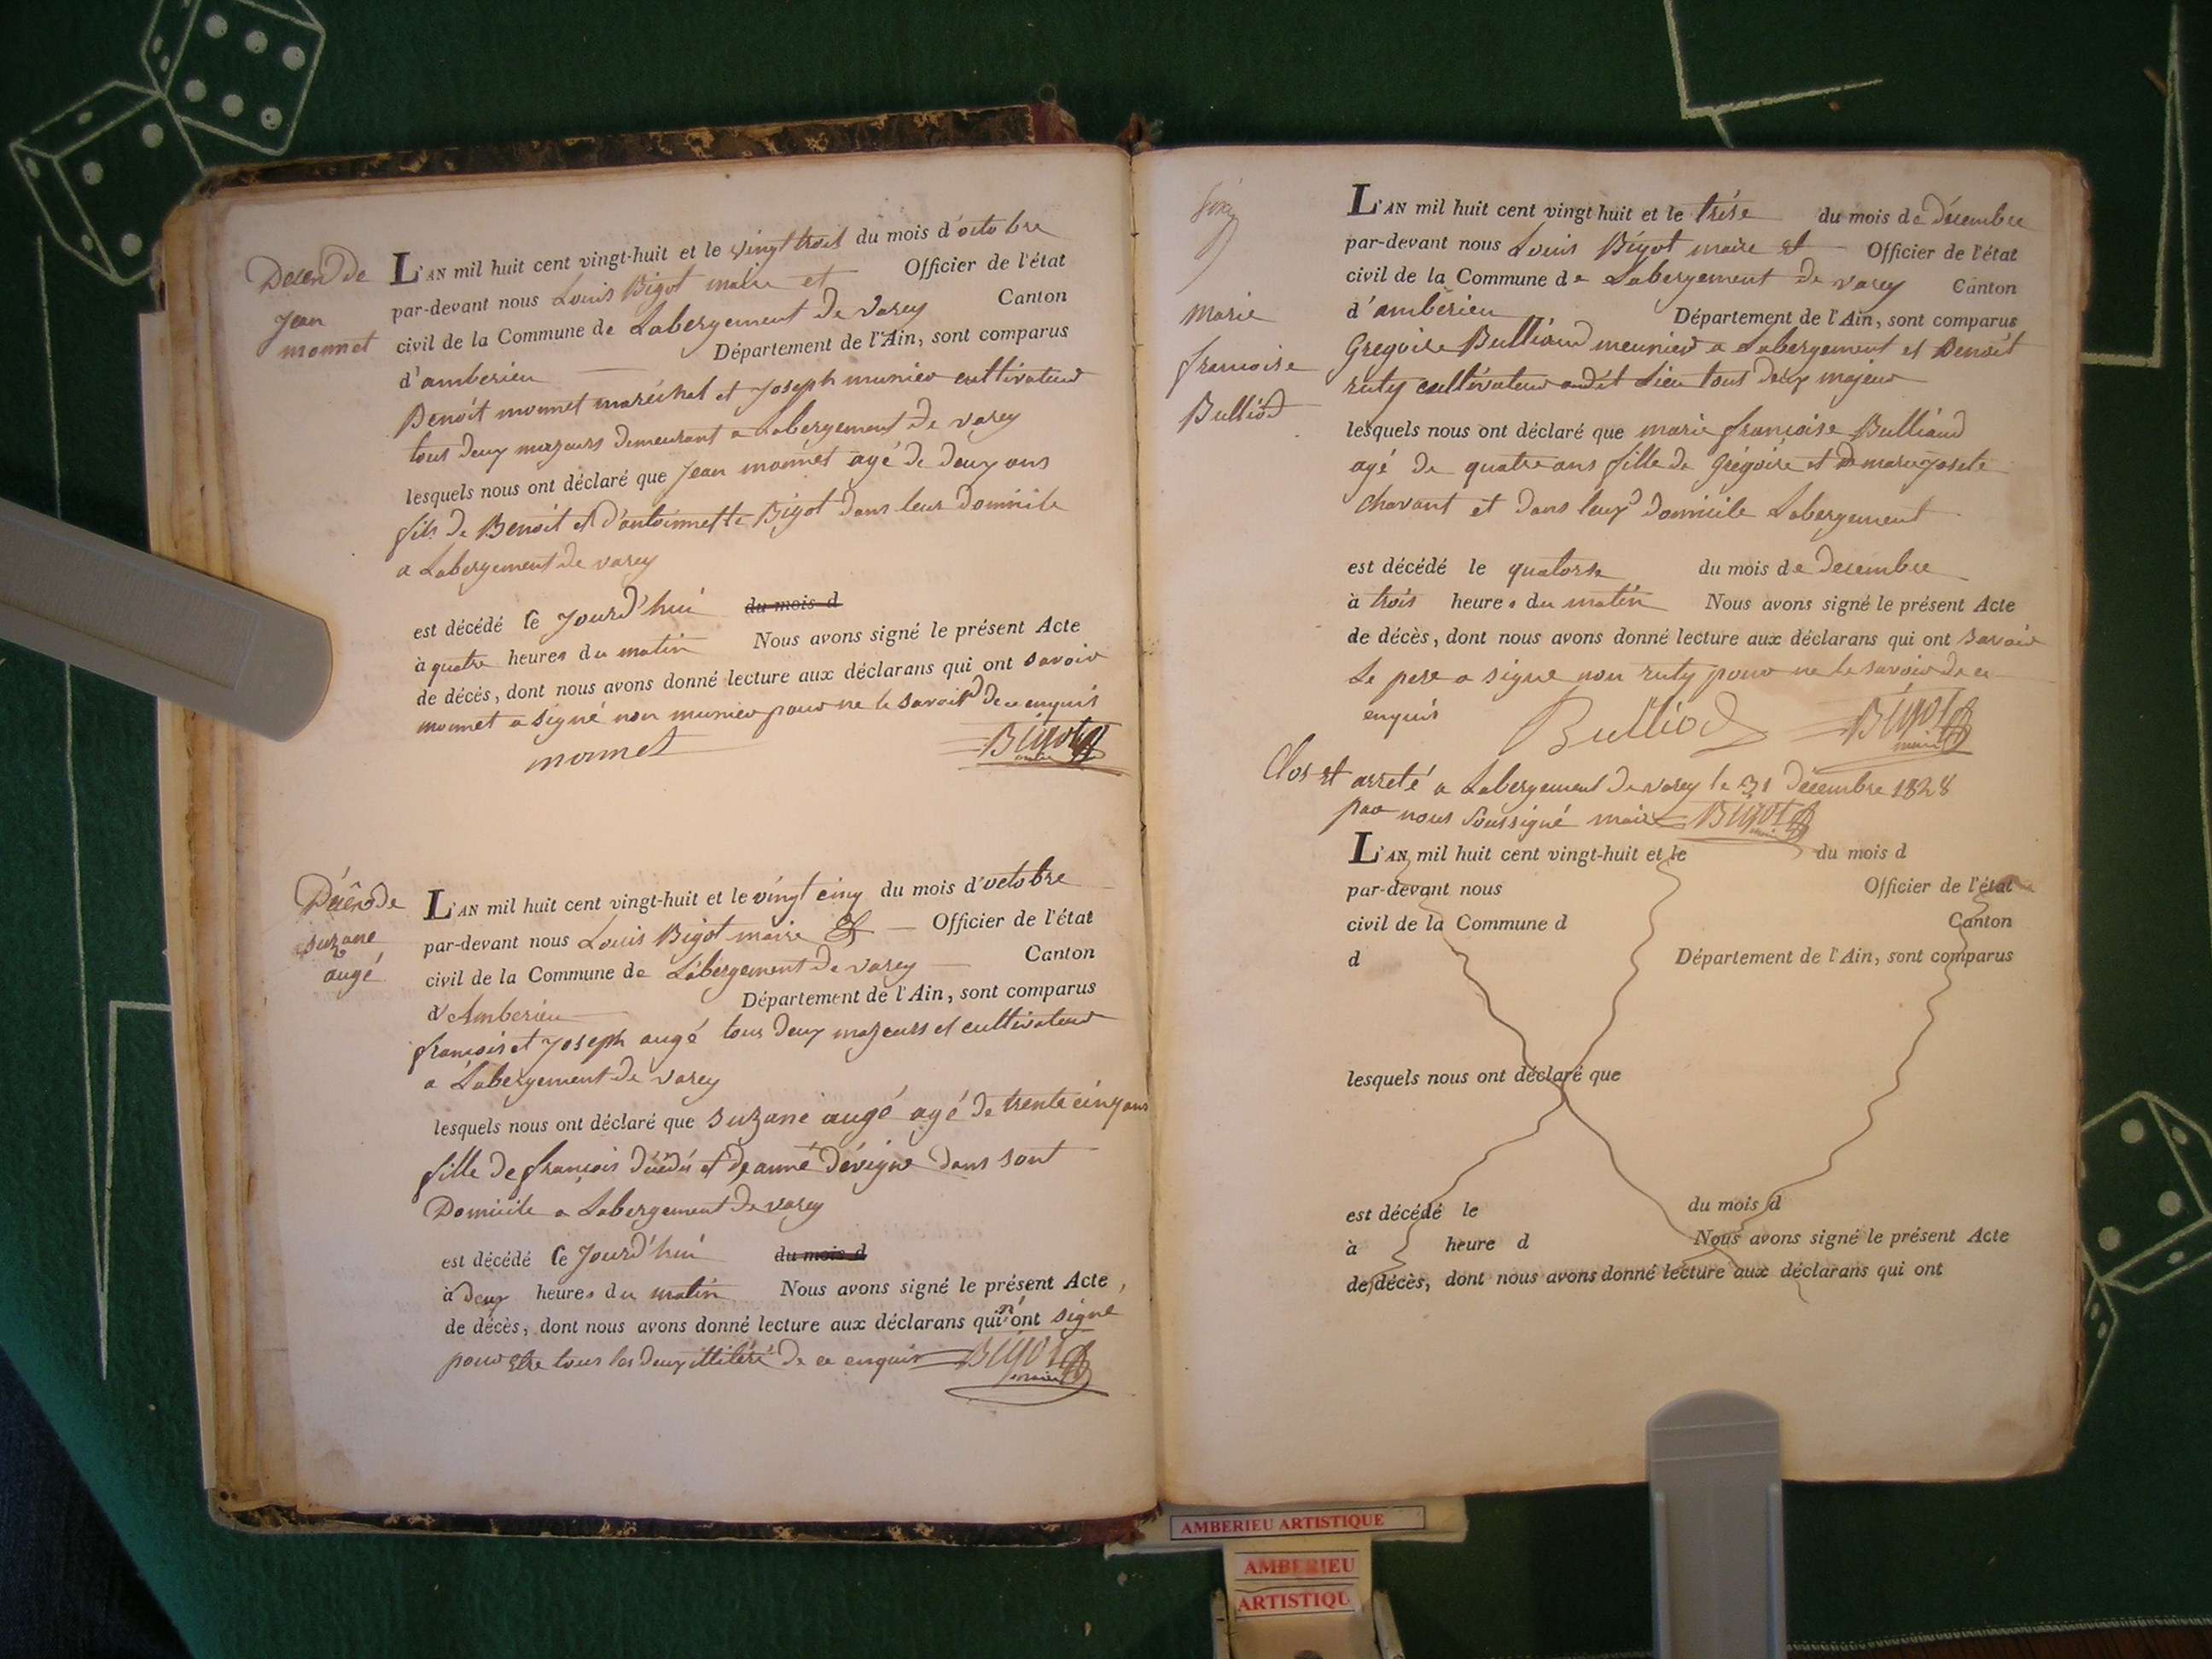 Décên de
Jean
monnet
L'AN mil huit cent vingt-huit et le vingt trois du mois d'octobre
par-devant nous Louis Bigot maire et Officier de l'état
civil de la Commune de Labergement de varey Canton
d'amberieu Département de l'Ain, sont comparus
Benoit monnet maréchal et Joseph munier cultivateur
tous deux majeurs demeurant a Labergement de varey
lesquels nous ont déclaré que Jean monnet agé de deux ans
fils de Benoit et d'antoinnette Bigot dans leur Domicile
a Labergement de varey
est décédé ce Jourd'hui du mois d
à quatre heures du matin Nous avons signé le présent Acte
de décès, dont nous avons donné lecture aux déclarans qui ont savoir
monnet a signé non munier pour ne le savoir de ce enquis
monnet Bigot
maire
Décên de
suzane
augé
L'AN mil huit cent vingt-huit et le vingt cinq du mois d'octobre
par-devant nous Louis Bigot maire & Officier de l'état
civil de la Commune de Labergement de varey Canton
d'Amberieu Département de l'Ain, sont comparus
francois et Joseph augé tous deux majeurs et cultivateur
a Labergement de varey
lesquels nous ont déclaré que suzane augé agé de trente cinq ans
fille de francois et de anne dévigne dans sont
Domicile a Labergement de varey
est décédé ce Jourd'hui du mois d
à deux heures du matin Nous avons signé le présent Acte,
de décès, dont nous avons donné lecture aux déclarans qui n'ont signé
pour etre tous les deux illiteré de ce enquis Bigot
maire
marie
francoise
Bulliod
L'AN mil huit cent vingt huit et le trése du mois de décembre
par-devant nous Louis Bigot maire et Officier de l'état
civil de la Commune de Labergement de varey Canton
d'amberieu Département de l'Ain, sont comparus
Gregoire Bulliaud meunier a Labergement et Benoit
ruty cultivateur audit Lieu tous deux majeur
lesquels nous ont déclaré que marie francoise Bulliaud
agé de quatre ans fille de Grégoire et de marie Josete
chavant et dans leur domicile Labergement
est décédé le quatorse du mois de decembre
à trois heures du matin Nous avons signé le présent Acte
de décès, dont nous avons donné lecture aux déclarans qui ont savoir
Le pere a signe non ruty pour ne le savoir de ce
enquis Bulliod Bigot
maire
Clos et arreté a Labergement de varey le 31 décembre 1828
par nous soussigné maire Bigot
maire
L'AN mil huit cent vingt-huit et le du mois d
par-devant nous Officier de l'état
civil de la Commune d Canton
d Département de l'Ain, sont comparus
lesquels nous ont déclaré que
est décédé le du mois d
à heure d Nous avons signé le présent Acte
de décès, dont nous avons donné lecture aux déclarans qui ont
AMBERIEU ARTISTIQUE
AMBERIEU
ARTISTIQU